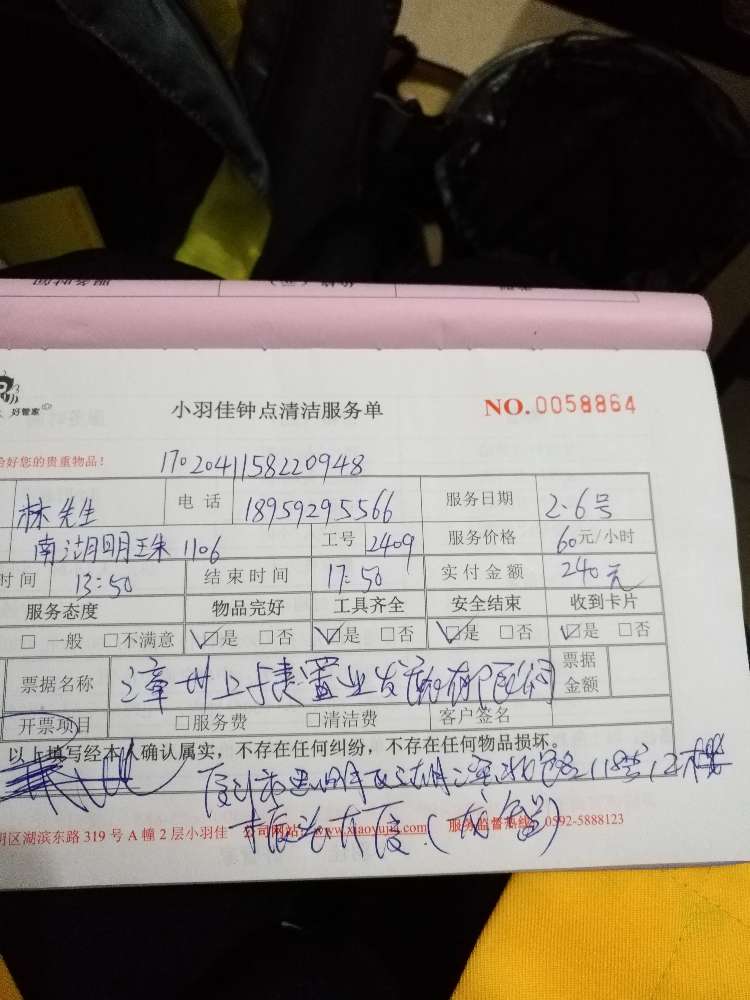 好管家 小羽佳钟点清洁服务单 NO.0058864
好您的贵重物品! 1702041158220948
林先生 电话 18959295566 服务日期 2.6号
南湖明珠1106 工号 2409 服务价格 60元/小时
时间 13:50 结束时间 17:50 实付金额 240元
服务态度 物品完好 工具齐全 安全结束 收到卡片
□ 一般 □不满意 ☑是 □否 ☑是 □否 ☑是 □否 ☑是 □否
票据名称 漳州 置业发 有限公司 票据金额
开票项目 □服务费 □清洁费 客户签名
以上填写经本人确认属实，不存在任何纠纷，不存在任何物品损坏。
明区湖滨东路 319 号 A 幢 2 层小羽佳 公司网站: www.xiaoyujia.com 服务监督热线: 0592-5888123